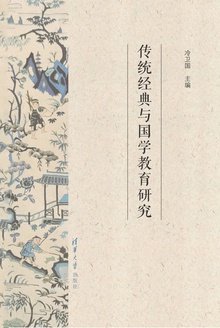 冷卫国 主编
传统经典与国学教育研究
清华大学出版社